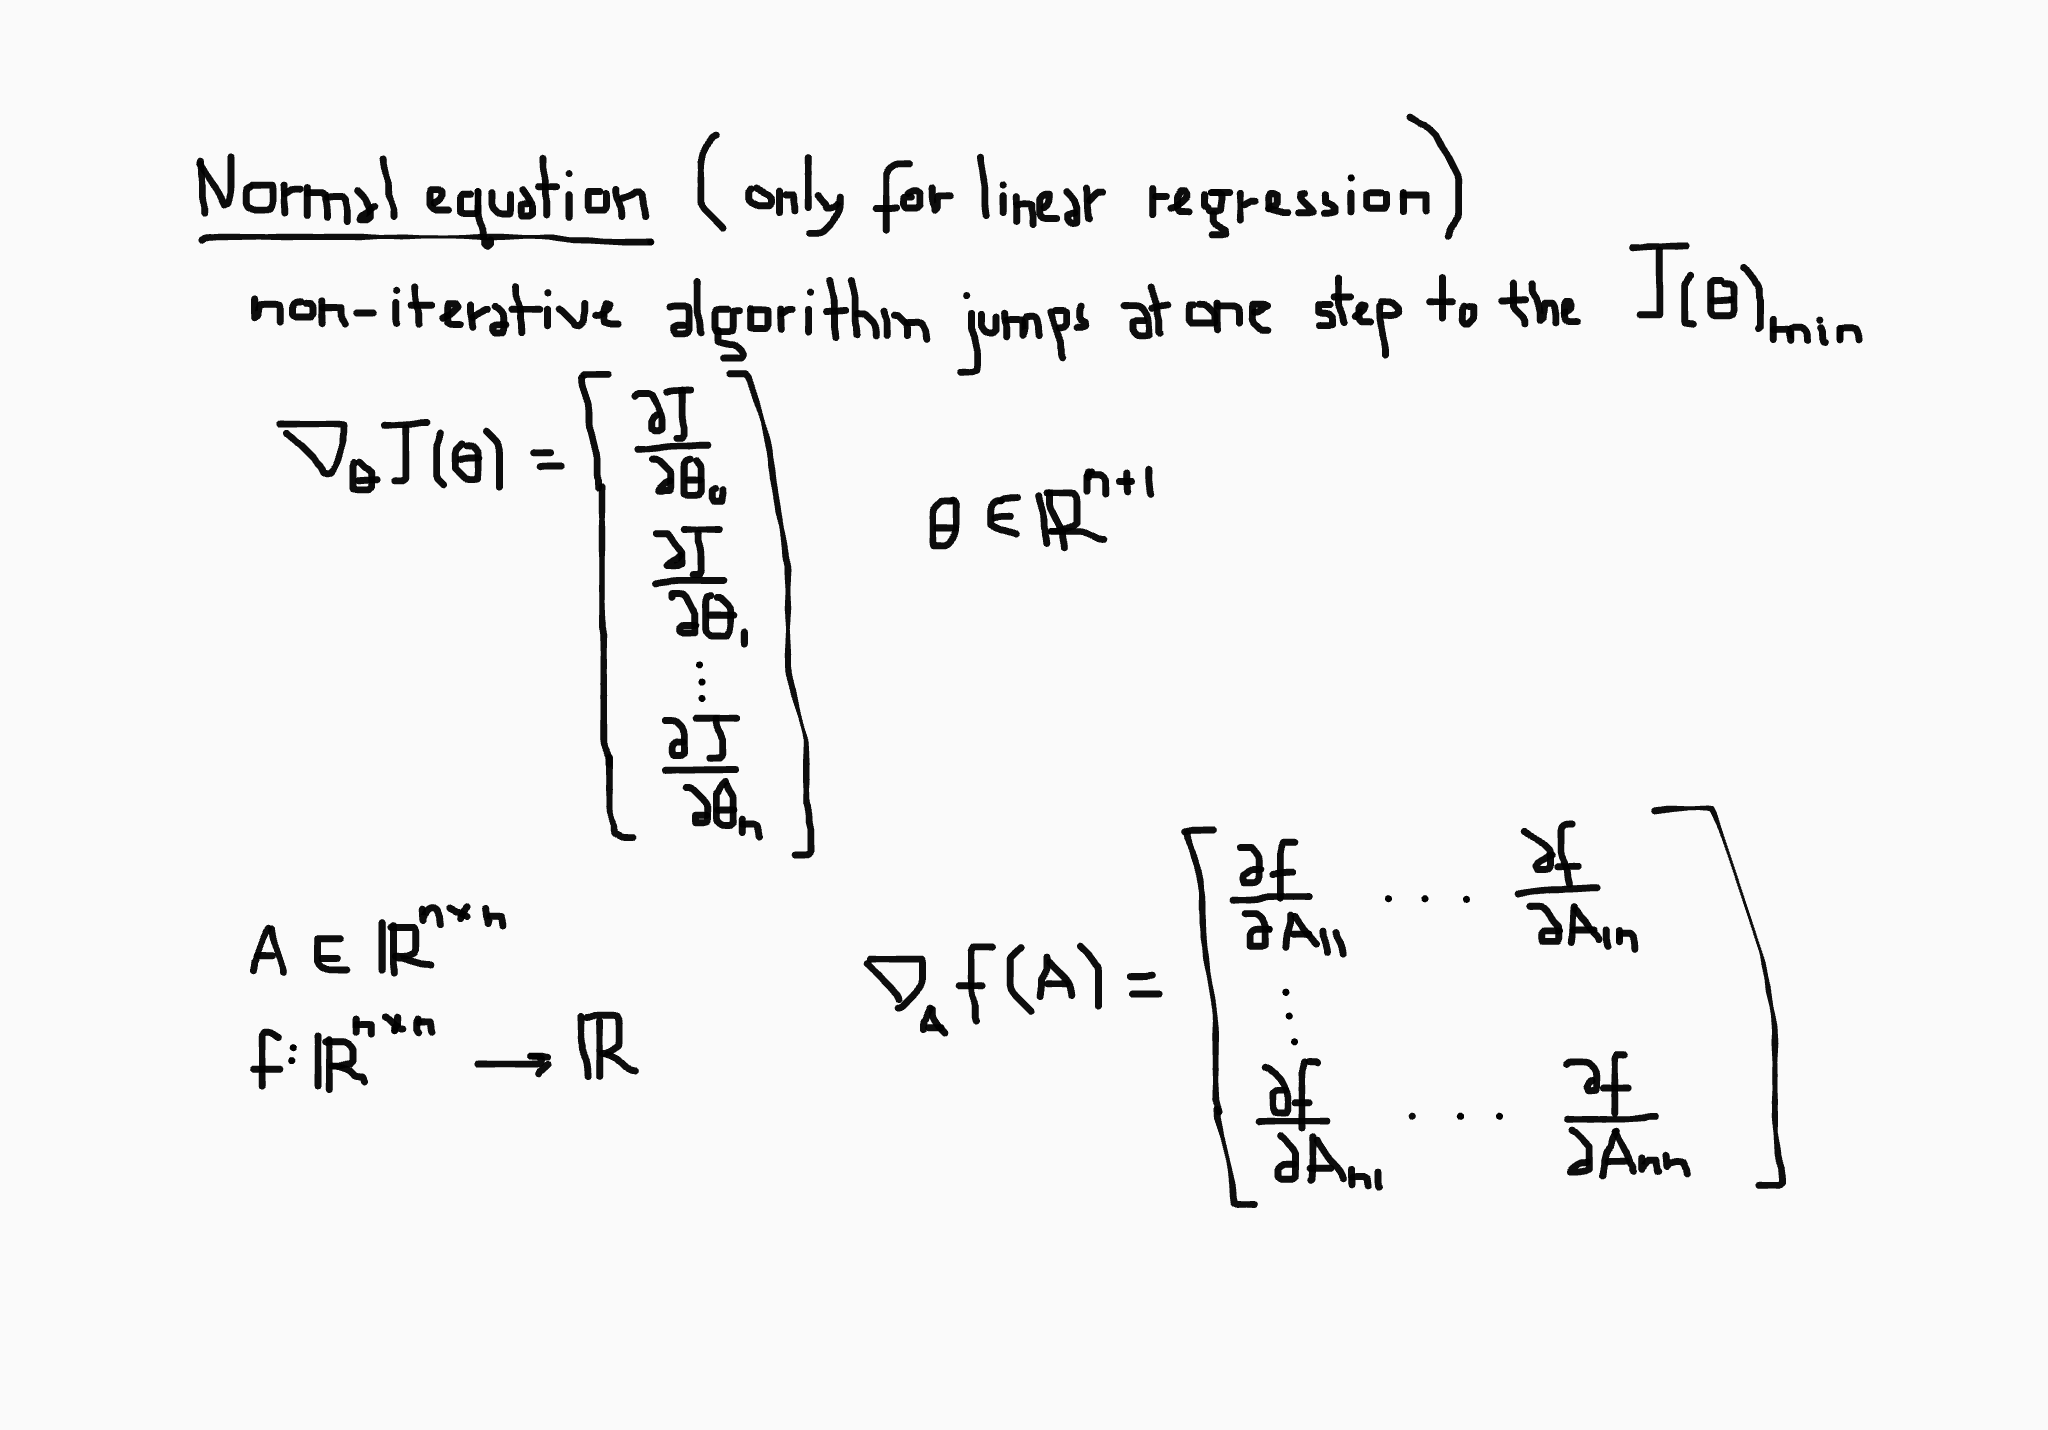 Normal equation (only for linear regression)
non-iterative algorithm jumps at one step to the J(θ)min
∇θ J(θ) = [ ∂J/∂θ₀ ∂J/∂θ₁ ⋮ ∂J/∂θₙ ] θ ∈ ℝⁿ⁺¹
A ∈ ℝⁿˣⁿ
f: ℝⁿˣⁿ → ℝ
∇A f(A) = [ ∂f/∂A₁₁ ... ∂f/∂A₁ₙ
⋮
∂f/∂Aₙ₁ ... ∂f/∂Aₙₙ ]